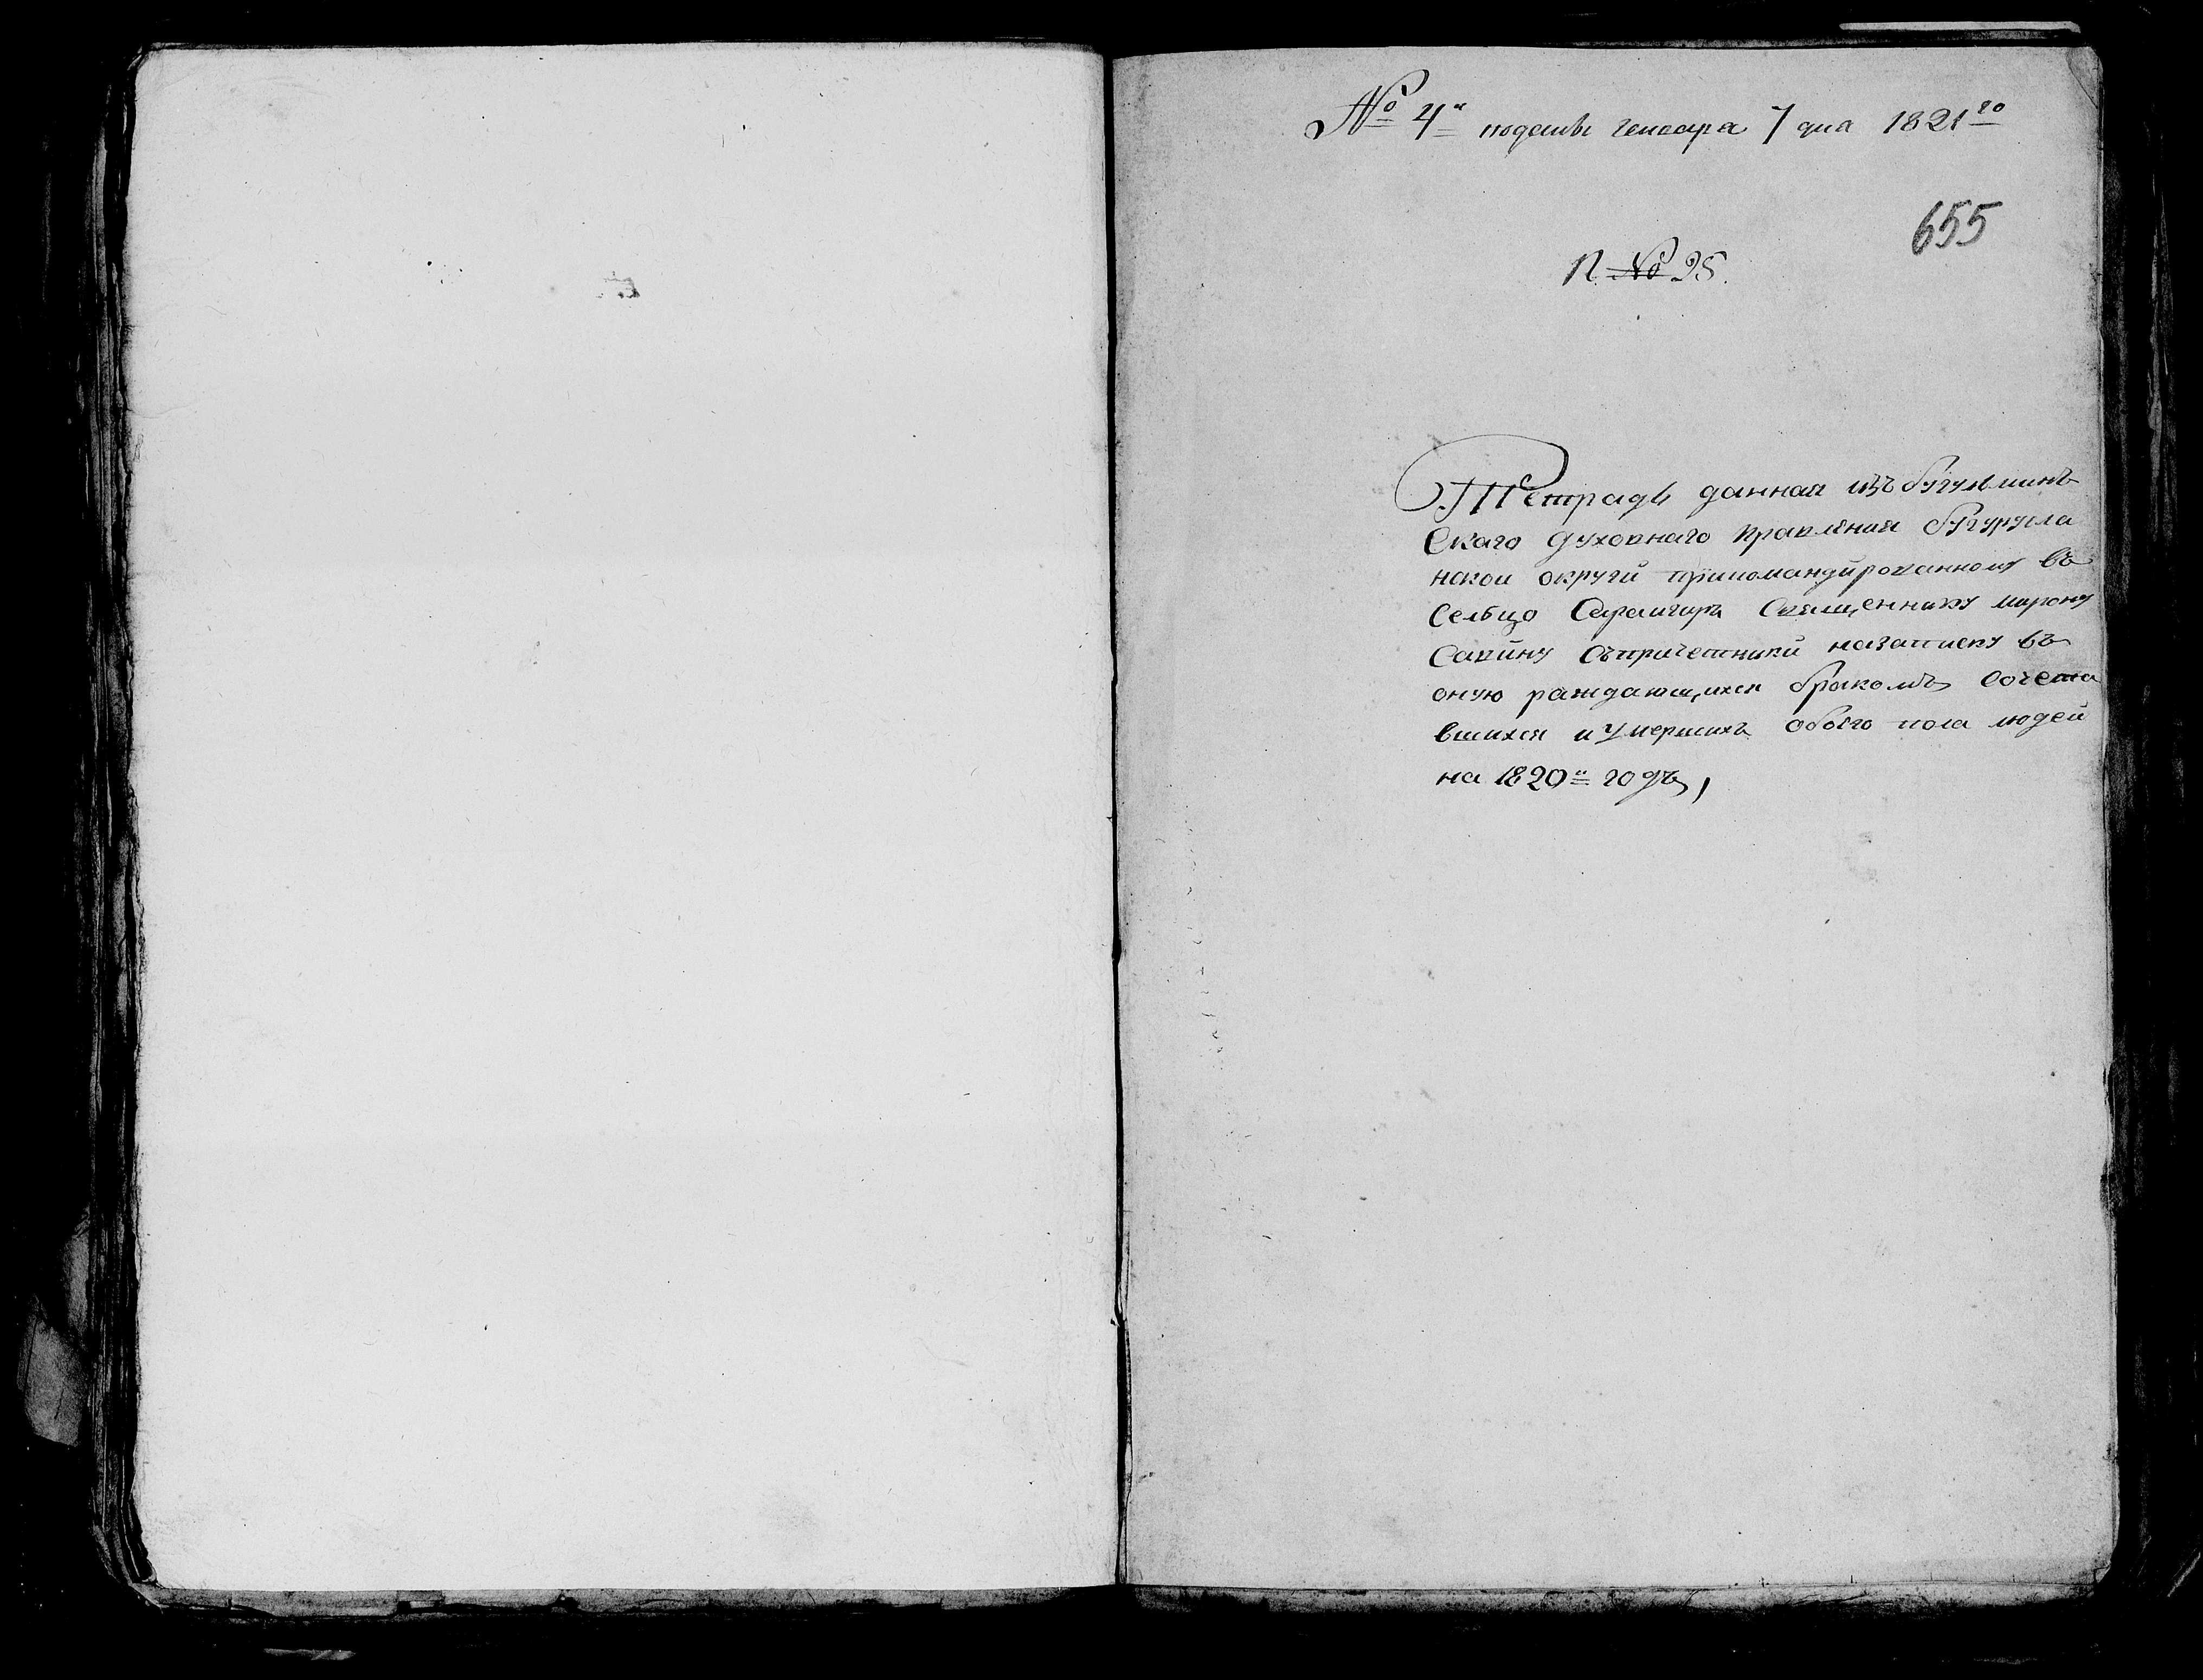 № 4й поданы генваря 7 дня 1821го
655
№ 25.
Тетрадь данная изъ бугульминъ
скаго духовнаго правления бугурусла
нской округи прикомандированному въ
сельцо Сарайгиръ Священнику мирону
Савину съпричетники назаписку въ
оную раждающихся бракомъ Сочета
вшихся и умершихъ обоего пола людей
на 1820й годъ,